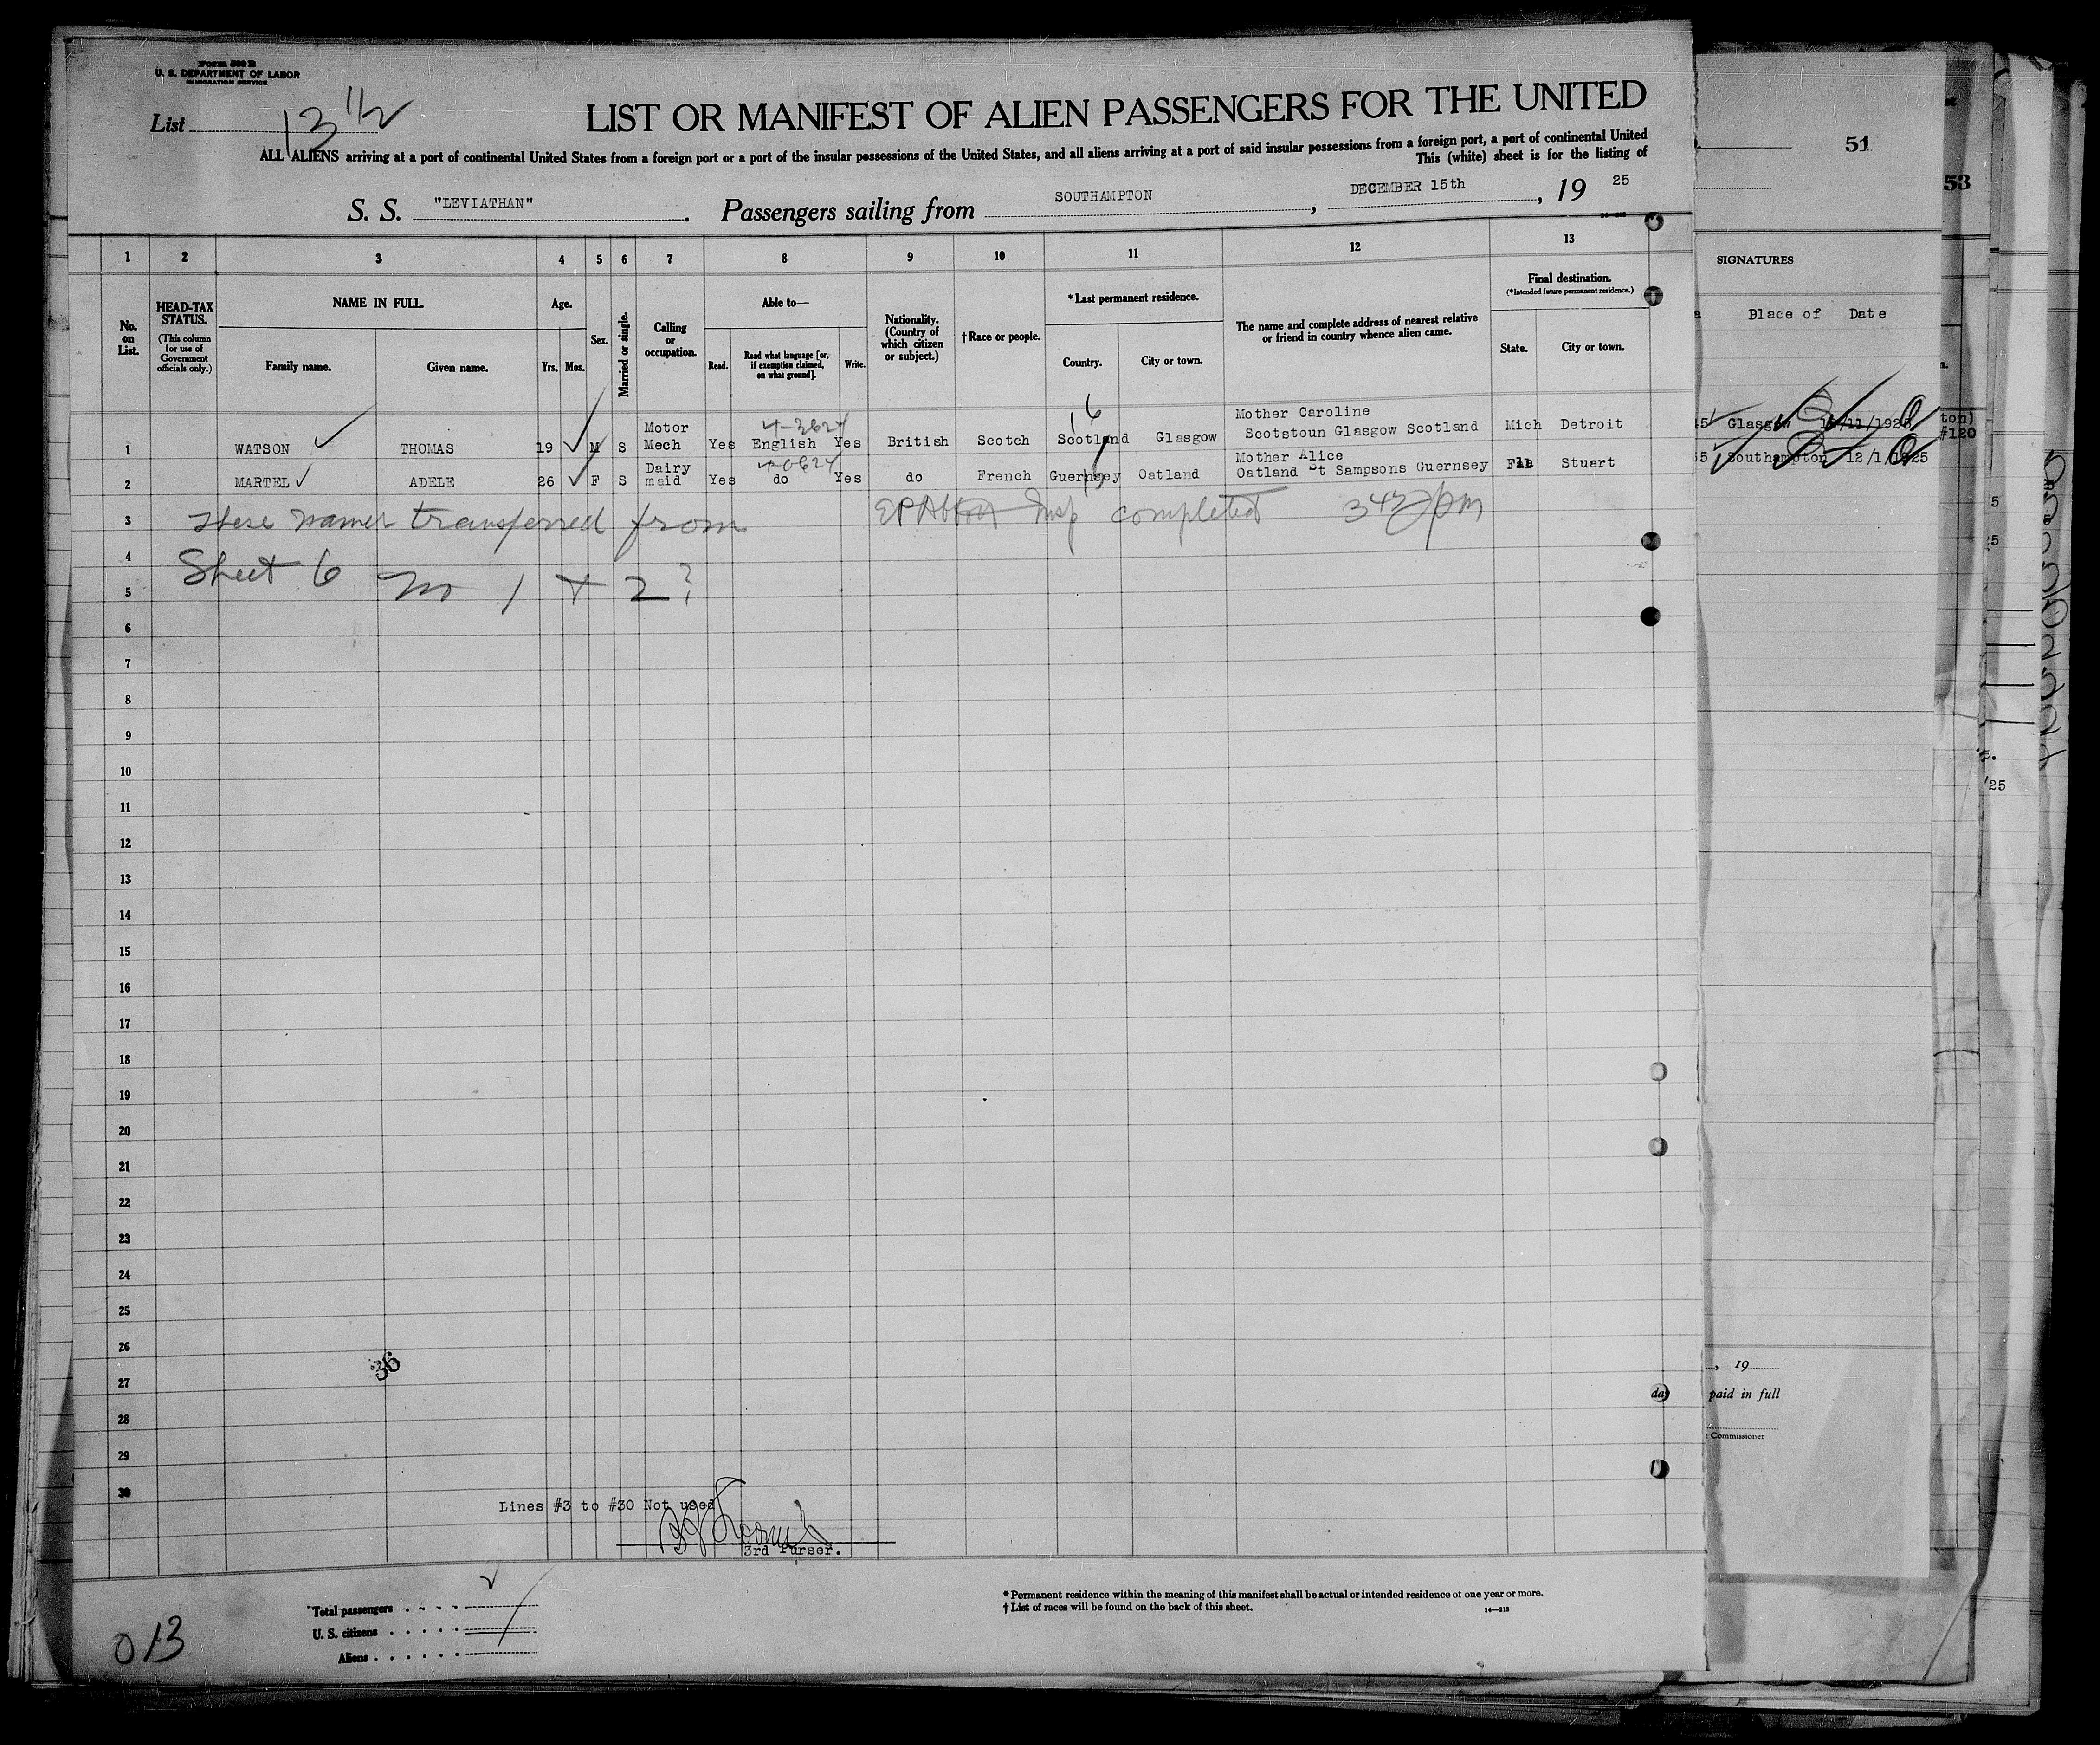 Form 500 B
U. S. DEPARTMENT OF LABOR
IMMIGRATION SERVICE
List 13 1/2
LIST OR MANIFEST OF ALIEN PASSENGERS FOR THE UNITED
ALL ALIENS arriving at a port of continental United States from a foreign port or a port of the insular possessions of the United States, and all aliens arriving at a port of said insular possessions from a foreign port, a port of continental United
This (white) sheet is for the listing of
S. S. "LEVIATHAN". Passengers sailing from SOUTHAMPTON, DECEMBER 15th, 19 25
51
53
1 2 3 4 5 6 7 8 9 10 11 12 13
No. on List.
HEAD-TAX STATUS.
(This column for use of Government officials only.)
NAME IN FULL.
Family name. Given name.
Age.
Yrs. Mos.
Sex.
Married or single.
Calling or occupation.
Able to—
Read. Read what language [or, if exemption claimed, on what ground]. Write.
Nationality. (Country of which citizen or subject.)
†Race or people.
*Last permanent residence.
Country. City or town.
The name and complete address of nearest relative or friend in country whence alien came.
Final destination.
(*Intended future permanent residence.)
State. City or town.
SIGNATURES
Blace of Date
1 WATSON THOMAS 19 M S Motor Mech Yes English Yes British Scotch Scotland Glasgow Mother Caroline Scotstoun Glasgow Scotland Mich Detroit
Glasgow
ton)
#120
2 MARTEL ADELE 26 F S Dairy maid Yes do Yes do French Guernsey Oatland Mother Alice Oatland St Sampsons Guernsey Fla Stuart
Southampton 12/1/1925
3 These names transferred from Insp completed 342 pm
4 Sheet 6
5 no 1 + 2?
6
7
8
9
10
11
12
13
14
15
16
17
18
19
20
21
22
23
24
25
26
36
27
28
29
30
Lines #3 to #30 Not used
3rd Purser.
, 19
paid in full
Commissioner
Total passengers
U. S. citizens
Aliens
013
* Permanent residence within the meaning of this manifest shall be actual or intended residence of one year or more.
† List of races will be found on the back of this sheet.
14—212